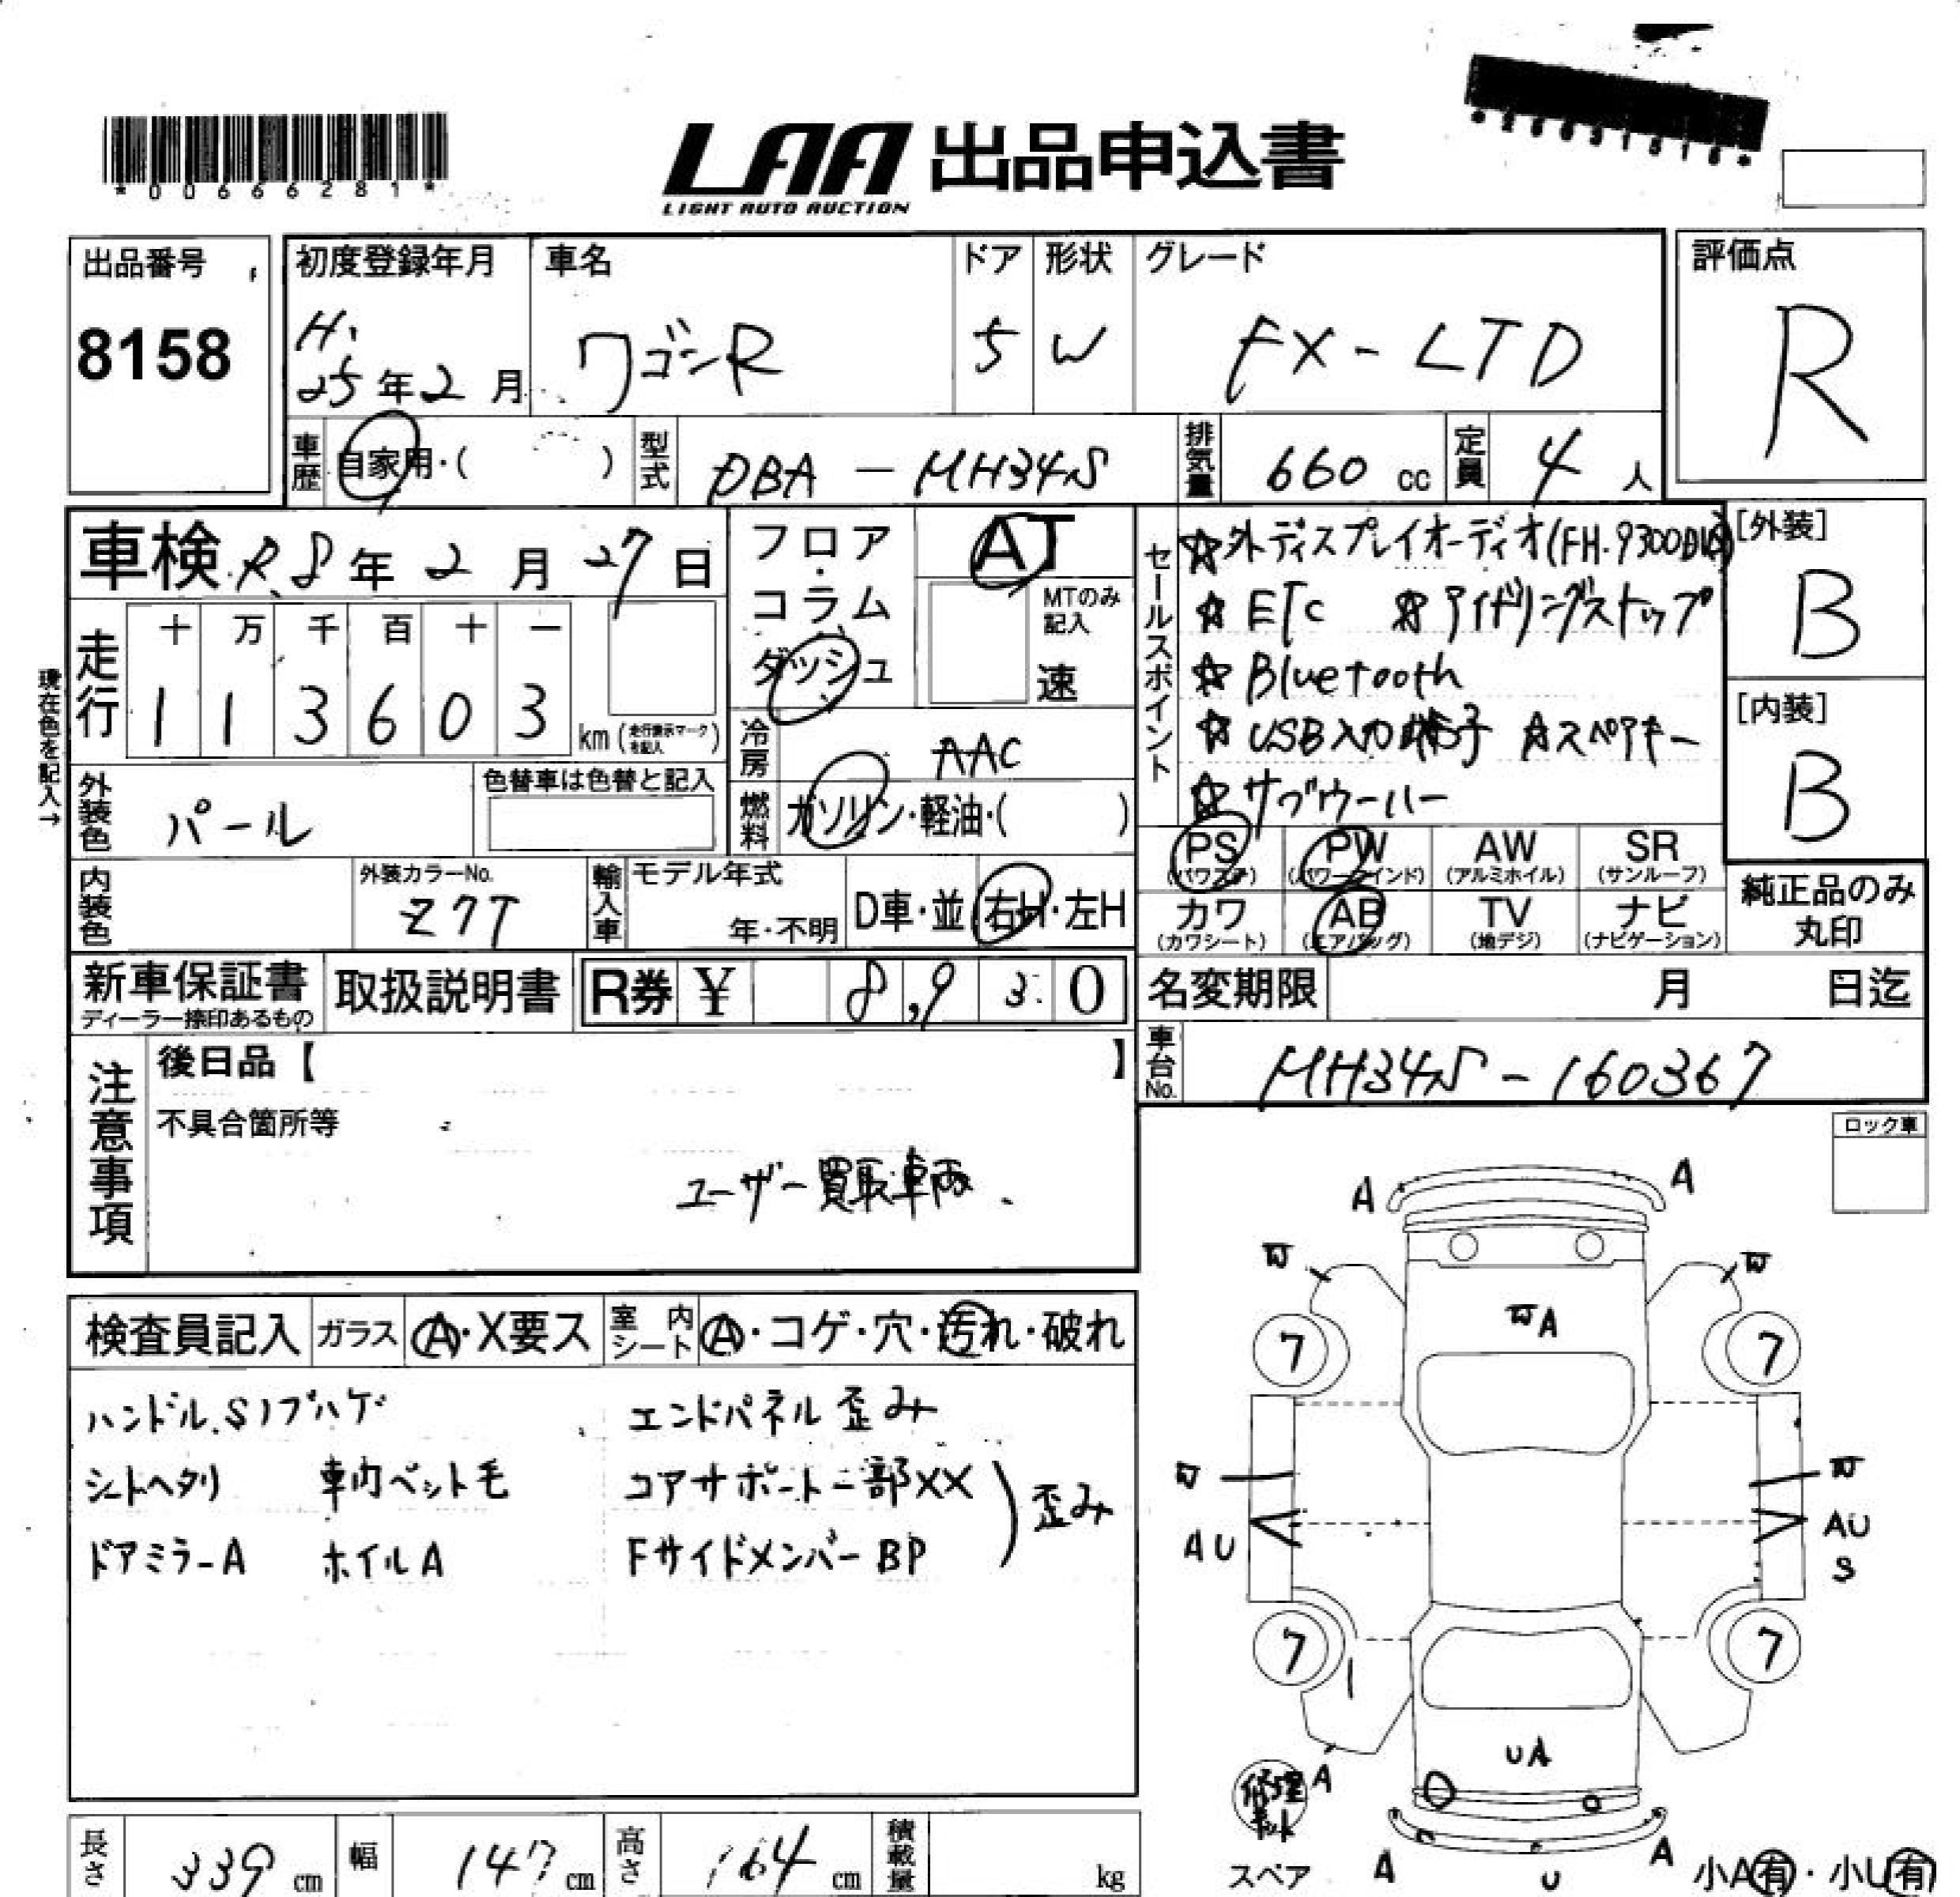 *00666281*
LAA 出品申込書
LIGHT AUTO AUCTION
出品番号
8158
初度登録年月
H.
25年2月
車名
ワゴンR
ドア
5
形状
W
グレード
FX-LTD
評価点
R
車歴
自家用・( )
型式
DBA-MH34S
排気量
660 cc
定員
4 人
車検 R.8年2月27日
フロア・コラム
ダッシュ
AT
MTのみ記入
速
セールスポイント
☆外ディスプレイオーディオ(FH-9300DVS)
☆ETC ☆アイドリングストップ
☆Bluetooth
☆USB入力端子 ☆スペアキー
☆サブウーハー
[外装]
B
[内装]
B
現在色を記入→
走行
十 万 千 百 十 一
1 1 3 6 0 3
km(走行表示マークを記入)
冷房
AAC
外装色
パール
色替車は色替と記入
燃料
ガソリン・軽油・( )
PS
(パワステ)
PW
(パワーウインド)
AW
(アルミホイル)
SR
(サンルーフ)
内装色
外装カラーNo.
Z7T
輸入車
モデル年式
年・不明
D車・並
右H・左H
カワ
(カワシート)
AB
(エアバッグ)
TV
(地デジ)
ナビ
(ナビゲーション)
純正品のみ
丸印
新車保証書
ディーラー捺印あるもの
取扱説明書
R券 ¥ 8,930
名変期限 月 日迄
車台No.
MH34S-160367
注意事項
後日品【 】
不具合箇所等
ユーザー買取車両
ロック車
検査員記入
ガラス
A・X要ス
室内シート
A・コゲ・穴・汚れ・破れ
ハンドル.Sノブハゲ
シートヘタリ 車内ペット毛
ドアミラーA ホイルA
エンドパネル歪み
コアサポート一部XX
FサイドメンバーBP
歪み
A
A
W
W
WA
7
7
W
W
AU
AU
S
7
7
UA
修理キット
A
スペア
A
U
A
小A有・小U有
長さ
339 cm
幅
147 cm
高さ
164 cm
積載量
kg